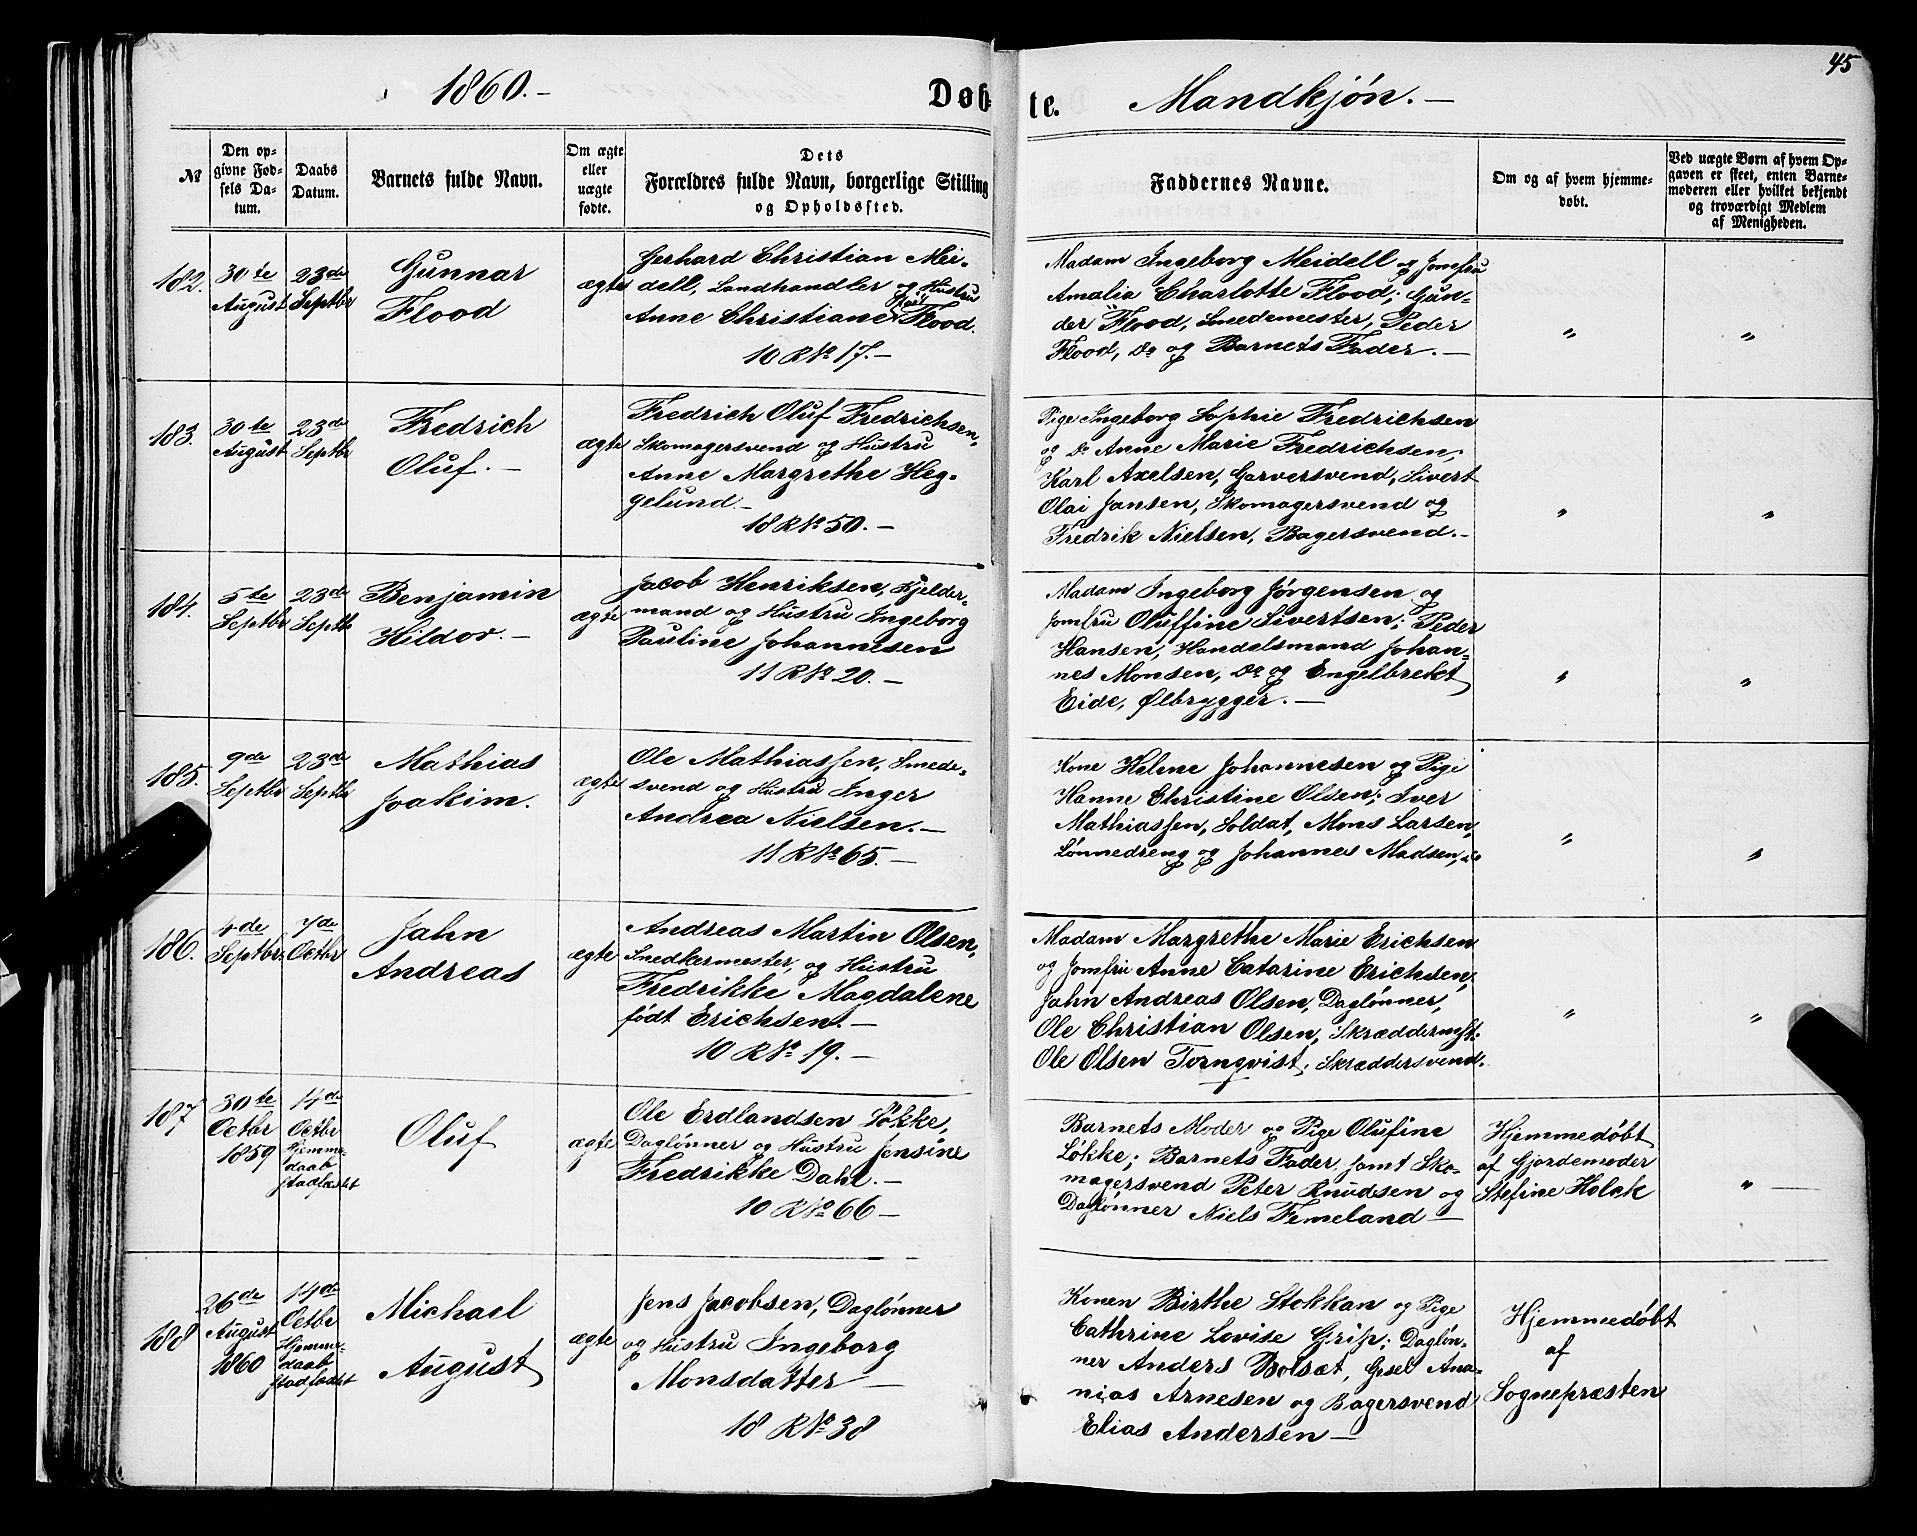 45
1860.-
Døbte.
Mandkjøn.-
№
Den opgivne Fødsels Datum.
Daabs Datum.
Barnets fulde Navn.
Om ægte eller uægte fødte.
Dets
Forældres fulde Navn, borgerlige Stilling
og Opholdsfted.
Faddernes Navne.
Om og af hvem hjemmedøbt.
Ved uægte Børn af hvem Opgaven er skeet, enten Barnemoderen eller hvilket bekjendt og troværdigt Medlem af Menigheden.
182.
30te
August
23de
Septbr
Gunnar
Flood
ægte
Gerhard Christian Mei-
dell, Landhandler og Hustru
Anne Christiane Flood.
10 R No 17.-
Madam Ingeborg Meidell og Jomfru
Amalia Charlotte Flood; Gun-
der Flood, Smedemester, Peder
Flood, Do og Barnets Fader.-
"
"
183.
30te
August
23de
Septbr
Fredrich
Oluf.-
ægte
Fredrich Oluf Fredrichsen,
Skomagersvend og Hustru
Anne Margrethe Heg-
gelund.-
18 R No 50.-
Pige Ingeborg Sophie Fredrichsen
og Do Anne Marie Fredrichsen,
Karl Axelsen, Garversvend, Sivert
Olai Jansen, Skomagersvend og
Fredrik Nielsen, Bagersvend.-
"
"
184.
5te
Septbr
23de
Septb
Benjamin
Hildor.-
ægte
Jacob Henriksen, Kjelder-
mand og Hustru Ingeborg
Pauline Johannesen
11 R No 20.-
Madam Ingeborg Jørgensen og
Jomfru Oluffine Sivertsen; Peder
Hansen, Handelsmand Johan-
nes Monsen, Do og Engelbrekt
Eide, Ølbrygger.-
"
"
185.
9de
Septbr
23de
Septbr
Mathias
Joakim.
ægte
Ole Mathiassen, Smede-
svend og Hustru Inger
Andrea Nielsen.-
11 R No 65.-
Kone Helene Johannesen og Pige
Hanne Christine Olsen; Iver
Mathiassen, Soldat, Mons Larsen,
Lønnedreng og Johannes Madsen, Do
"
"
186.
4de
Septbr.
7de
Octbr
Jahn
Andreas
ægte
Andreas Martin Olsen,
Snedkermester, og Hustru
Fredrikke Magdalene
født Erichsen.-
10 R No 19.-
Madam Margrethe Marie Erichsen
og Jomfru Anne Catarine Erichsen,
Jahn Andreas Olsen, Daglønner,
Ole Christian Olsen, Skræddermstr.
Ole Olsen Tornqvist, Skræddersvend.
"
"
187
30te
Octbr
1859
14de
Octbr
Hjemme-
daab
stadfæstet
Oluf
ægte
Ole Erdlandsen Løkke,
Daglønner og Hustru Jensine
Fredrikke Dahl.-
10 R No 66-
Barnets Moder og Pige Olufine
Løkke; Barnets Fader samt Sko-
magersvend Peter Knudsen og
Daglønner Niels Femeland-
Hjemmedøbt
af Gjordemoder
Stefine Holck
"-
188
26de
August
1860
14de
Octbr
Hjemme-
daab
stadfæstet
Michael
August
ægte
Jens Jacobsen, Daglønner
og Hustru Ingeborg
Monsdatter-
18 R No 38
Konen Birthe Stokkan og Pige
Cathrine Lovise Grip; Dagløn-
ner Anders Bolsæt, Gesel Ana-
nias Arnesen og Bagersvend
Elias Andersen-
Hjemmedøbt
af
Sognepræsten